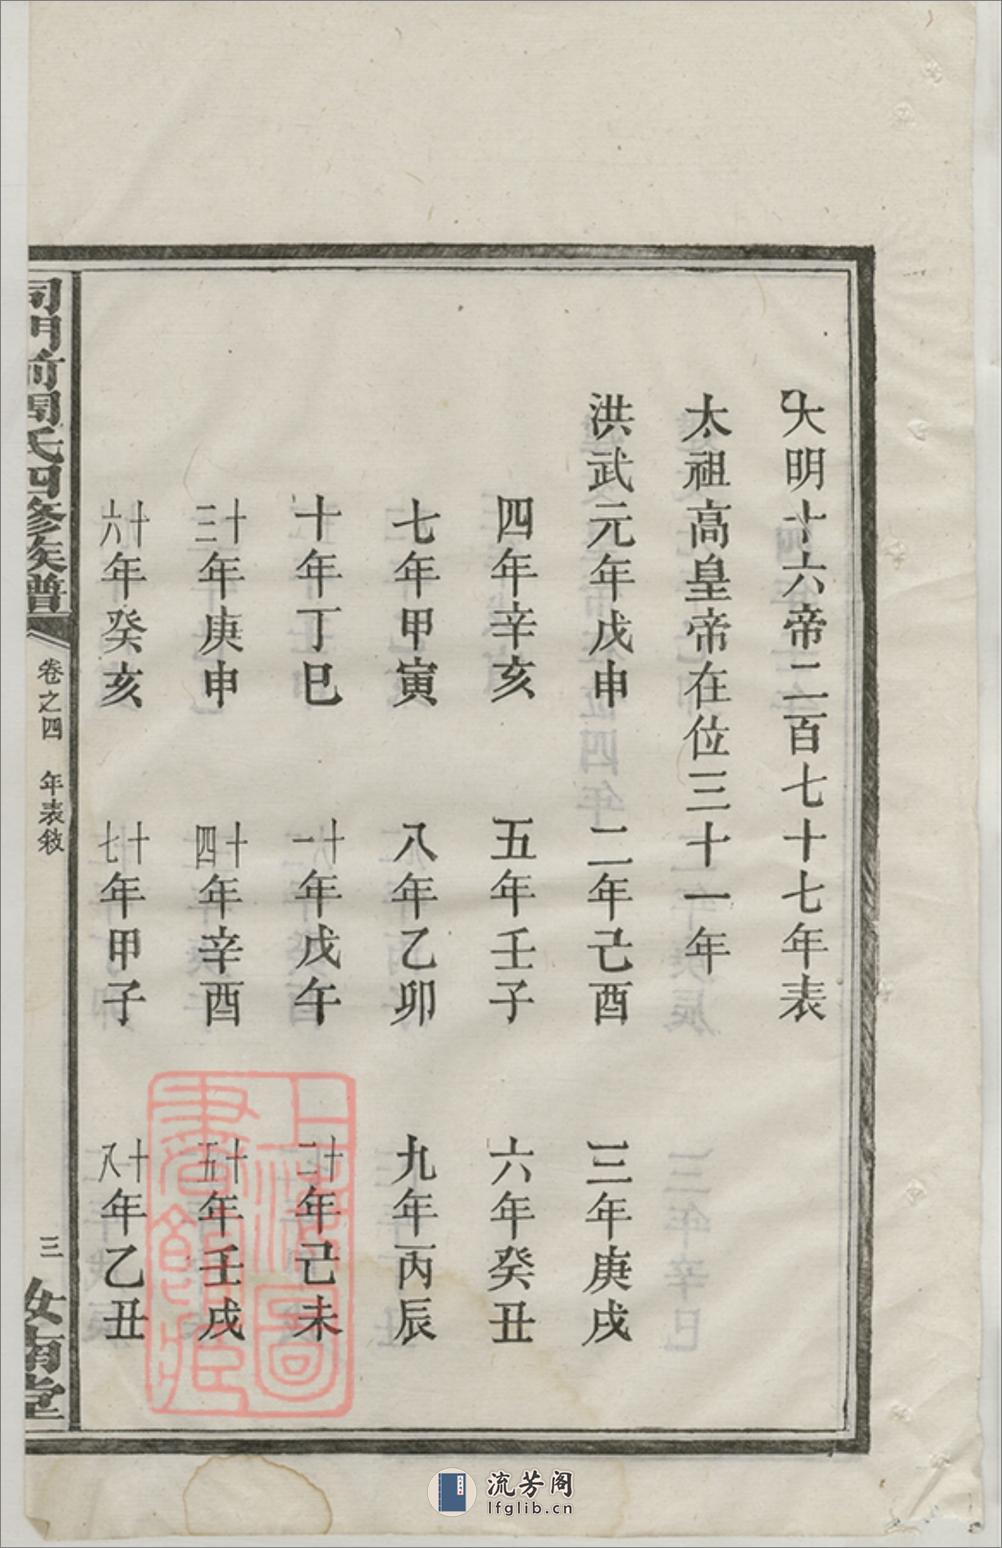 大明十六帝二百七十七年表
太祖高皇帝在位三十一年
洪武元年戊申 二年己酉 三年庚戌
四年辛亥 五年壬子 六年癸丑
七年甲寅 八年乙卯 九年丙辰
十年丁巳 十一年戊午 十二年己未
十三年庚申 十四年辛酉 十五年壬戌
十六年癸亥 十七年甲子 十八年乙丑
門前周氏四修族譜 卷之四 年表敍 三 汝南堂
上海圖書館藏
流芳阁
lfglib.cn